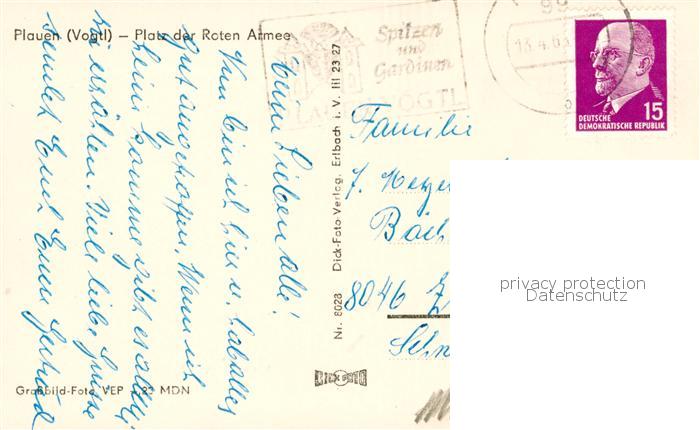 Plauen (Vogtl) — Platz der Roten Armee
Spitzen
und
Gardinen
PLAUEN VOGTL
99
13.4.65
15
DEUTSCHE
DEMOKRATISCHE REPUBLIK
Meine Lieben alle!
Nun bin ich hier u. hab alles
gut angetroffen. Wenn ich
heim komme gibt es allerlei
zu erzählen. Viele liebe Grüsse
sendet Euch Eure Gertrud
Nr. 8028 Dick-Foto-Verlag, Erlbach i. V. III 23 27
Familie
J. Meyer
Bäch
8046 Z
Schw
DICK FOTO
Großbild-Foto VEP -,23 MDN
privacy protection
Datenschutz